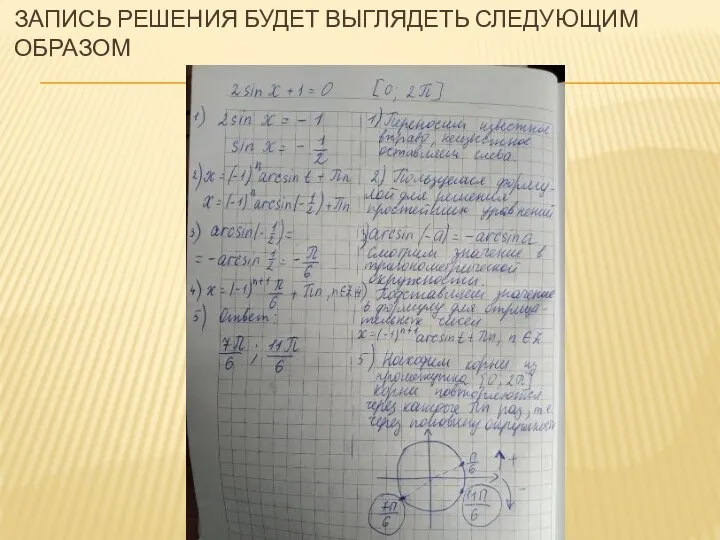 ЗАПИСЬ РЕШЕНИЯ БУДЕТ ВЫГЛЯДЕТЬ СЛЕДУЮЩИМ
ОБРАЗОМ
2 sin x + 1 = 0 [0; 2П]
1) 2 sin x = - 1
sin x = - 1/2
2) x = (-1)^n arcsin t + Пn
x = (-1)^n arcsin(- 1/2) + Пn
3) arcsin(- 1/2) =
= - arcsin 1/2 = - П/6
4) x = (-1)^n+1 П/6 + Пn, n∈Z
5) Ответ:
7П/6 ; 11П/6
1) Переносим известное
вправо, неизвестное
оставляем слева.
2) Пользуемся форму-
лой для решения
простейших уравнений
3) arcsin(-a) = - arcsin a
Смотрим значение в
тригонометрической
окружности.
4) Подставляем значение
в формулу для отрица-
тельных чисел
x = (-1)^n+1 arcsin t + Пn, n∈Z
5) Находим корни из
промежутка [0; 2П]
корни повторяются
через каждое Пn раз, т.е.
через половину окружности
П/6
+
-
7П/6
11П/6